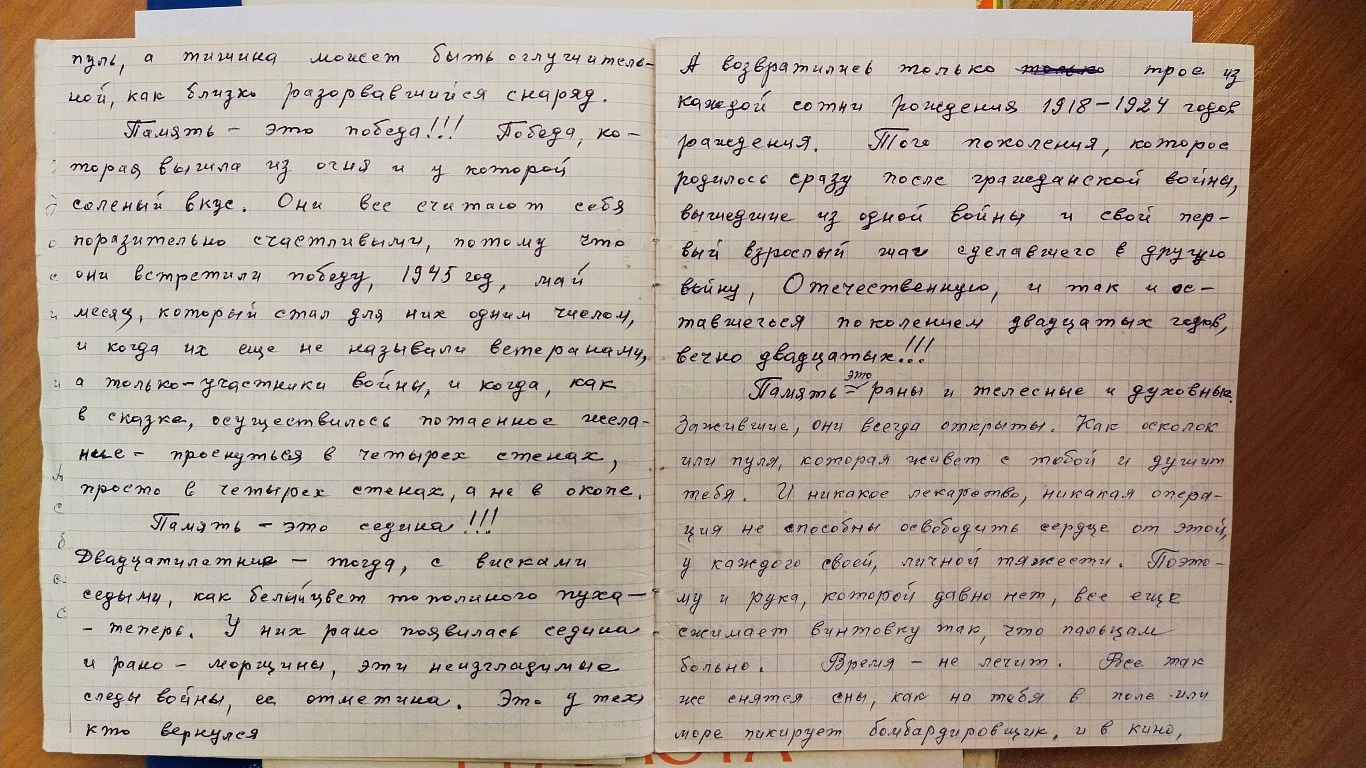 пуль, а тишина может быть оглушитель-
ной, как близко разорвавшийся снаряд.
Память – это победа!!! Победа, ко-
торая вышла из огня и у которой
соленый вкус. Они все считают себя
поразительно счастливыми, потому что
они встретили победу, 1945 год, май
месяц, который стал для них одним числом,
и когда их еще не называли ветеранами,
а только-участники войны, и когда, как
в сказке, осуществилось потаенное жела-
ние – проснуться в четырех стенах,
просто в четырех стенах, а не в окопе.
Память – это седина!!!
Двадцатилетние – тогда, с висками
седыми, как белый цвет тополиного пуха –
- теперь. У них рано появилась седина
и рано – морщины, эти неизгладимые
следы войны, ее отметина. Это у тех,
кто вернулся
А возвратились только только трое из
каждой сотни рождения 1918–1924 годов
раждения. Того поколения, которое
родилось сразу после гражданской войны,
вышедшие из одной войны и свой пер-
вый взрослый шаг сделавшего в другую
войну, Отечественную, и так и ос-
тавшегося поколением двадцатых годов,
вечно двадцатых!!!
Память – это раны и телесные и духовные.
Зажившие, они всегда открыты. Как осколок
или пуля, которая живет с тобой и душит
тебя. И никакое лекарство, никакая опера-
ция не способны освободить сердце от этой,
у каждого своей, личной тяжести. Поэто-
му и рука, которой давно нет, все еще
сжимает винтовку так, что пальцам
больно. Время – не лечит. Все так
же снятся сны, как на тебя в поле или
море пикирует бомбардировщик, и в кино,